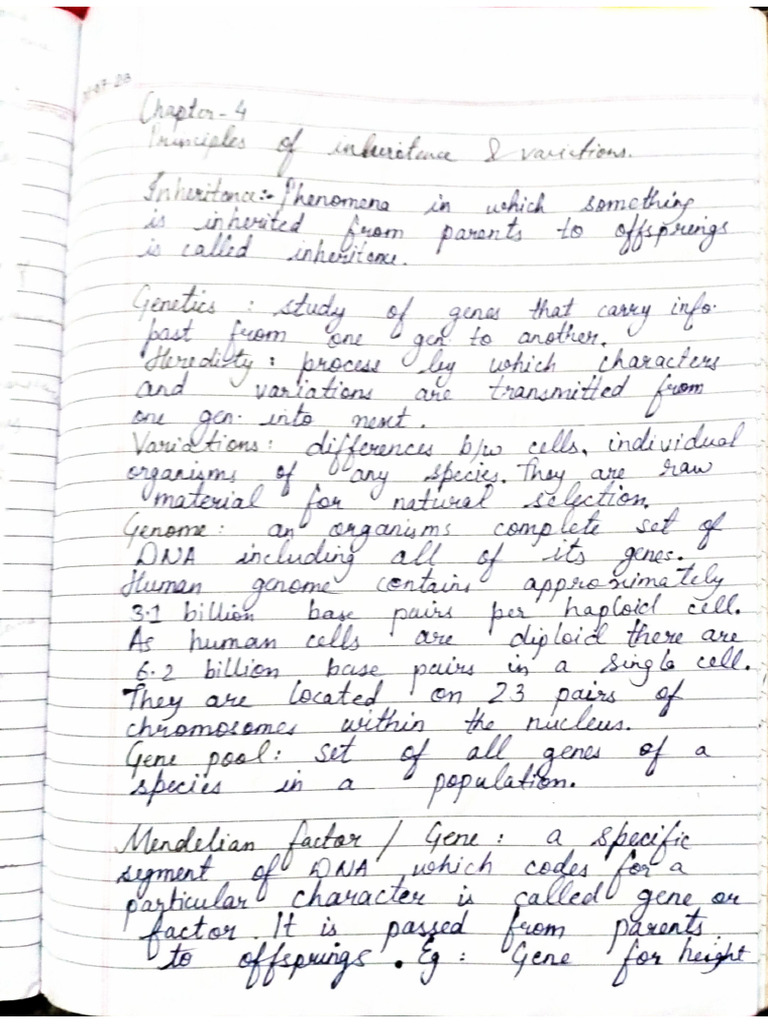 Chapter-4
Principles of inheritance & variations.
Inheritance:- Phenomena in which something
is inherited from parents to offsprings
is called inheritance.
Genetics : study of genes that carry info.
past from one gen. to another.
Heredisty : process by which characters
and variations are transmitted from
one gen. into next.
Variations : differences b/w cells, individual
organisms of any species. They are raw
material for natural selection.
Genome : an organisms complete set of
DNA including all of its genes.
Human genome contains approximately
3.1 billion base pairs per haploid cell.
As human cells are diploid there are
6.2 billion base pairs in a single cell.
They are located on 23 pairs of
chromosomes within the nucleus.
Gene pool : set of all genes of a
species in a population.
Mendelian factor / Gene : a specific
segment of DNA which codes for a
particular character is called gene or
factor. It is passed from parents
to offsprings. Eg : Gene for height